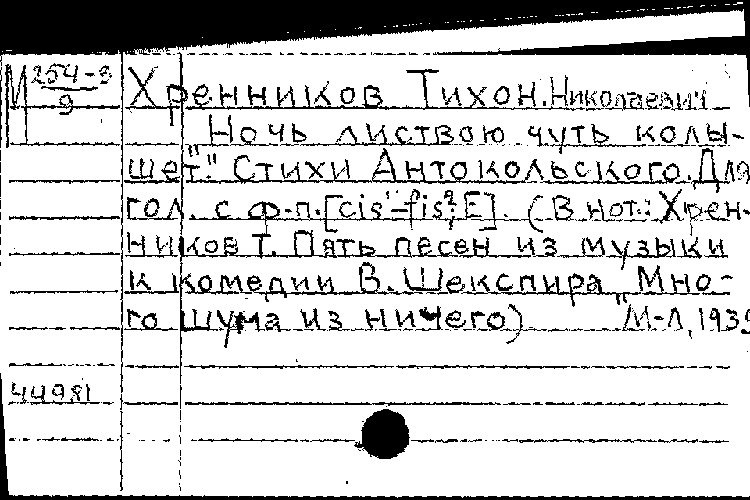 М 254-3/9 Хренников Тихон. Николаевич
Ночь листвою чуть колы-
шет." Стихи Антокольского. Для
гол. с ф-п. [cis'-fis²; E]. (В нот.: Хрен-
ников Т. Пять песен из музыки
к комедии В. Шекспира „Мно-
го шума из ничего) М-Л, 1939
44981